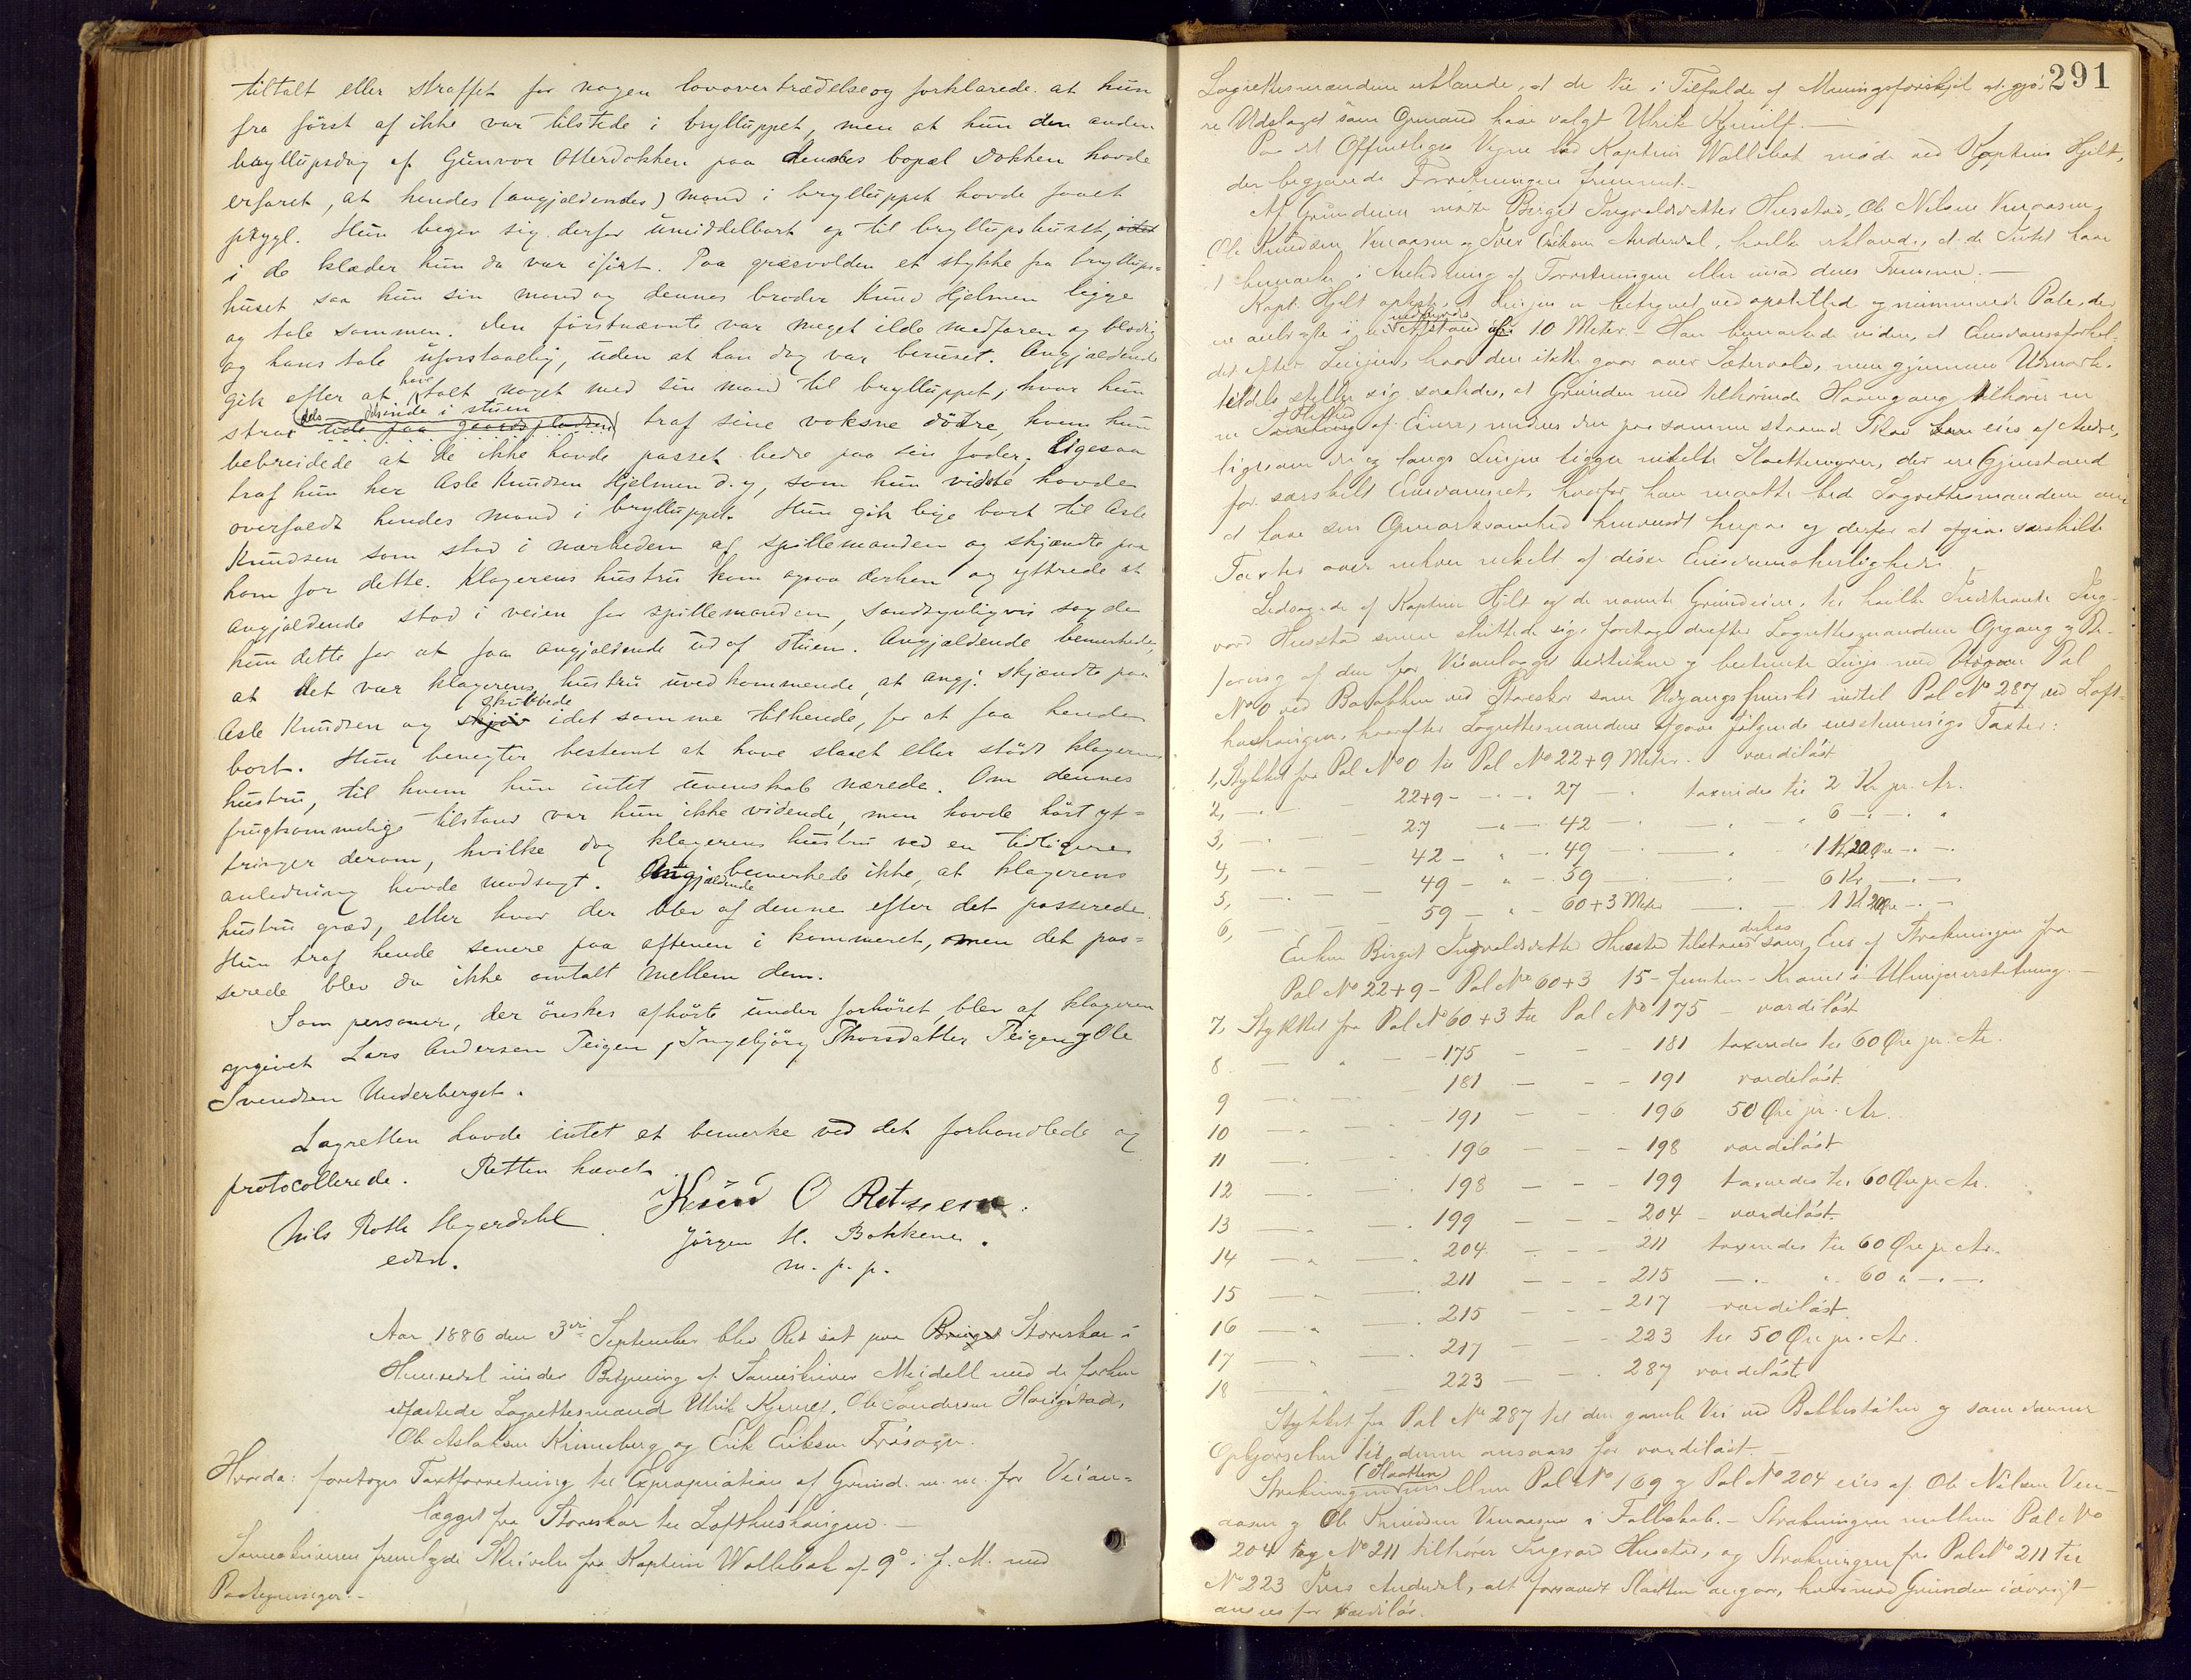 tiltalt eller straffet for nogen lovovertrædelse og forklarede at hun
fra först af ikke var tilstede i bryllüppet, men at hun den anden
bryllüpsdag af Günvor Otterdokken paa dennes bopæl Dokken havde
erfaret, at hendes (angjældendes) mand i bryllüppet havde faaet
prygl. Hun begav sig derfor ümiddelbart op til bryllüpshuset,
i de klæder hun da var iført. Paa græsvolden et stykke fra bryllüps=
huset saa hun sin mand og dennes broder Knud Hjelmen ligge
og tale sammen. Den förstnævnte var meget ilde medfaren og blodig
og hans tale üforstaaelig, üden at han dog var beruset. Angjældende
gik efter at have talt noget med sin mand til bryllüppet, hvor hun
dels inde i stuen
strax ude paa gaardspladsen traf sine voksne dötre, hvem hun
bebreidede at de ikke havde passet bedre paa sin fader. Ligesaa
traf hun her Asle Knudsen Hjelmen d. y, som hun vidste havde
overfaldt hendes mand i bryllüppet. Hun gik lige bort til Asle
Knudsen som stod i nærheden af spillemanden og skjændte paa
ham for dette. Klagerens hustru kom ogsaa derhen og yttrede at
angjældende stod i veien for spillemanden, sandsynligvis sagde
hun dette for at faa angjældende ud af stüen. Angjældende bemerkede,
at det var klagerens hustru üvedkommende, at angj. skjændte paa
skubbede
Asle Knudsen og skjöv idet samme til hende, for at faa hende
bort. Hun benegter bestemt at have slaaet eller stödt klagerens
hustru, til hvem hun intet üvenskab nærede. Om dennes
frugtsommelige tilstand var hun ikke vidende, men havde hört yt=
tringer derom, hvilke dog klagerens hustru ved en tidligere
anledning havde modsagt. Angjældende bemerkede ikke, at klagerens
hustru græd, eller hvor der blev af denne efter det passerede.
Hun traf hende senere paa aftenen i kammeret, men det pas=
serede blev da ikke omtalt mellem dem.
Som personer, der önskes afhörte ünder forhöret, blev af klageren
opgivet Lars Andersen Teigen, Ingebjörg Thorsdatter Teigen og Ole
Svendsen Underberget.
Lagretten havde intet at bemerke ved det forhandlede og
protocollerede. Retten hævet
Nils Roth Heyerdahl
edsv.
Knud O
Jörgen H. Bakkene.
m. p. p.
Aar 1886 den 3die September blev Ret sat paa Storeskar i
Hemsedal under Betjening af Sorenskriver Meidell med de forhen
edfæstede Lagrettesmænd Ulrik Kjerulf, Ole Sandersen Haugstad,
Ole Aslaksen Kinneberg og Erik Eriksen Frösager.
Hvorda: foretoges Taxtforretning til Expropriation af Grund m. m. for Veian=
lægget fra Storeskar til Lofthushaugen.—
Sorenskriveren fremlagde Skrivelse fra Kaptein Wallebæk af 9de i f. M. med
Paategninger.—
291
Lagrettesmændene erklærede, at de til i Tilfælde af Meningsforskjel at gjö-
re Udslaget som Opmand have valgt Ulrik Kjerulf.—
Paa det Offentliges Vegne lod Kaptein Wallebæk møde ved Kaptein Hjelt,
der begjærede Forretningen fremmet.—
Af Grundeiere mødte Birgit Ingvaldsdatter Husstad, Ole Nilsen Venaasen,
Ole Knudsen Venaasen og Iver Eriksen Anderdal, hvilke erklærede, at de Intet have
at bemærke i Anledning af Forretningen eller imod dens Fremme.—
Kapt. Hjelt oplyste, at Linjen er betegnet ved opstillede og nummererede Pæle, der
ere anbragte i en indbyrdes Afstand af 10 Meter. Han bemærkede videre, at Eiendomsforhol-
det efter Linjen, hvor den ikke gaar over Sætervold, men gjennem Udmark,
tildels stiller sig saaledes, at Grunden med tilhørende Havnegang tilhører en
en Flerhed af Eiere, medens den paa samme staaende Skov kan eies af Andre,
ligesom der og langs Linjen ligger enkelte Slaattemyrer, der ere Gjenstand
for særskilt Eiendomsret, hvorfor han maatte bede Lagrettesmændene om
at have sin Opmærksomhed henvendt herpaa og derfor at afgive særskilte
Taxter over enhver enkelt af disse Eiendomsherligheder.
Ledsagede af Kaptein Hjelt og de nævnte Grundeiere, til hvilke Indstævnte Ing-
vard Husstad senere sluttede sig, foretoge derefter Lagrettesmændene Opgang og Be-
faring af den for Veianlægget udstukne og bestemte Linje med Pæl
No 0 ved Barakken ved Storeskar som Udgangspunkt indtil Pæl No 287 ved Loft-
hushaugen, hvorefter Lagrettesmændene afgave følgende enstemmige Taxter:
1, Stykket fra Pæl No 0 til Pæl No 22+9 Meter. værdiløst
2, —.— — 22+9 — — — 27 — . taxeredes til 2 Kr. pr. Ar.
3, —.— — 27 — „ — 42 — . — . „ 6 — . — „
4, — „ — 42 — „ — 49 — . — . „ 1 Kr 20 Øre — . —
5, —.— — 49 — „ — 59 — . — . — 6 Kr. — . —
6, —.— — 59 — „ — 60+3 Meter — . — 1 Kr 20 Øre — . —
Enken Birgit Ingvaldsdatter Husstad tilstaaes derhos som Eier af Strækningen fra
Pæl No 22+9 — Pæl No 60+3 15 — femten — Kroner i Ulempeerstatning.—
7, Stykket fra Pæl No 60+3 til Pæl No 175 værdiløst
8 — „ — — 175 — — — 181 taxeredes til 60 Øre pr. Ar.
9 — . — — 181 — — — 191 værdiløst.
10 — „ — 191 — — . 196 50 Øre pr. Ar.
11 — . — 196 — — — 198 værdiløst
12 — . — . 198 — — — 199 taxeredes til 60 Øre pr Ar.
13 — „ — . 199 — — — 204 — værdiløst.
14 — „ — . 204 — — — 211 taxeredes til 60 Øre pr Ar.
15 — „ — . 211 — — — 215 — . — „ 60 „ — . —
16 — „ — . 215 — — — 217 værdiløst
17 — „ — . 217 — — 223 til 50 Øre pr. Ar.
18 — „ — 223 — — . 287 værdiløst
Stykket fra Pæl No 287 til den gamle Vei ved Bekkestølen og sammes
Opkjørsel til denne ansaaes for værdiløst.—
(Slaatten)
Strækningen mellem Pæl No 169 og Pæl No 204 eies af Ole Nilsen Ven-
aasen og Ole Knudsen Venaasen i Fællesskab.— Strækningen mellem Pæl No
204 og No 211 tilhører Ingvard Husstad, og Strækningen fra Pæl No 211 til
No 223 Iver Anderdal, alt forsaavidt Slaatten angaar, hvorimod Grunden iøvrigt
ansees for værdiløs.